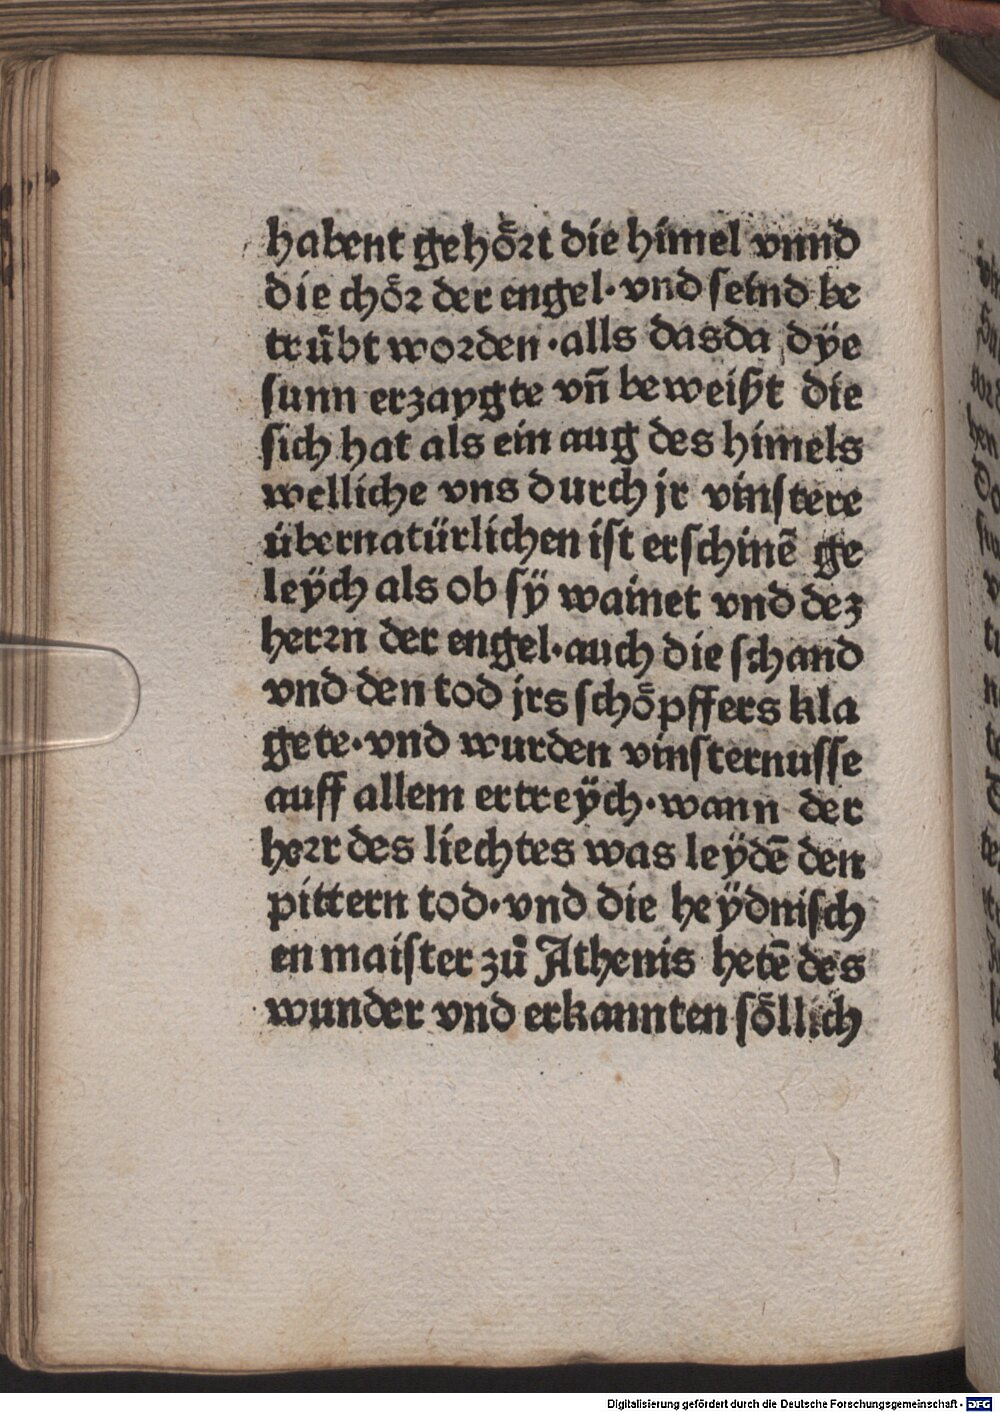 habent gehoͤrt die himel vnnd
die choͤr der engel · vnd seind be
truͤbt worden · alls dasda dÿe
sunn erzaygte vn̄ beweißt die
sich hat als ein aug des himels
welliche vns durch jr vinstere
übernatürlichen ist erschinē ge
leÿch als ob sÿ wainet vnd dez
herrn der engel · auch die schand
vnd den tod jrs schoͤpffers kla
gete · vnd wurden vinsternusse
auff allem ertreÿch · wann der
herr des liechtes was leÿdē den
pittern tod · vnd die heÿdnisch
en maister zuͦ Athenis hetē des
wunder vnd erkannten soͤllich
Digitalisierung gefördert durch die Deutsche Forschungsgemeinschaft - DFG